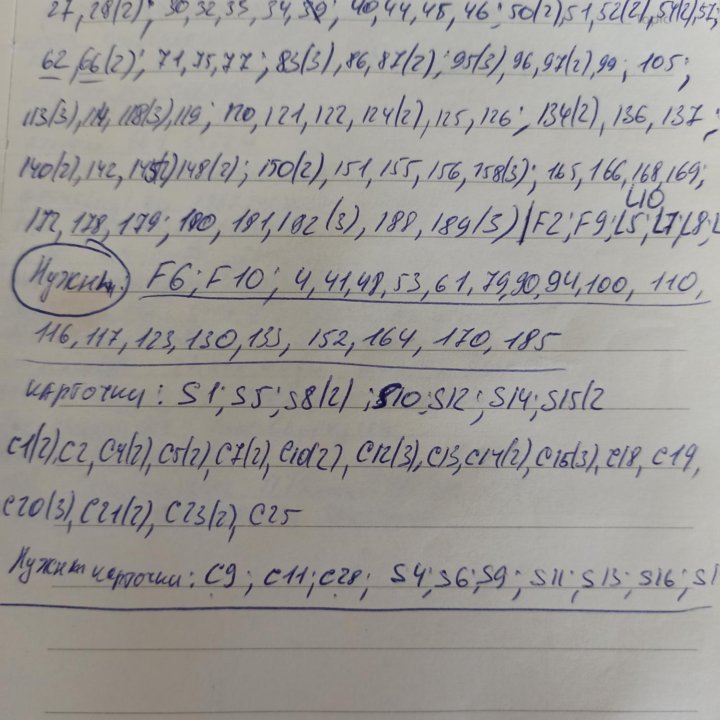 27, 28(2); 30, 32, 33, 34, 39; 40, 44, 45, 46; 50(2), 51, 52(2), 54(2), 57,
62, 66(2); 71, 75, 77; 83(3), 86, 87(2); 95(3), 96, 97(2), 99; 105;
113(3), 114, 118(3), 119; 120, 121, 122, 124(2), 125, 126; 134(2), 136, 137;
140(2), 142, 145(2) 148(2); 150(2), 151, 155, 156, 158(3); 165, 166, 168, 169;
40
172, 178, 179; 180, 181, 182(3), 188, 189(3) F2; F9; L5; L7; L8;
Нужны: F6; F10; 4, 41, 48, 53, 61, 79, 90, 94, 100, 110,
116, 117, 123, 130, 133, 152, 164, 170, 185
карточки: S1; S5; S8(2); S10; S12; S14; S15(2
C1(2), C2, C4(2), C5(2), C7(2), C10(2), C12(3), C13, C14(2), C15(3), C18, C19,
C20(3), C21(2), C23(2), C25
Нужны карточки: C9; C11; C28; S4; S6; S9; S11; S13; S16;